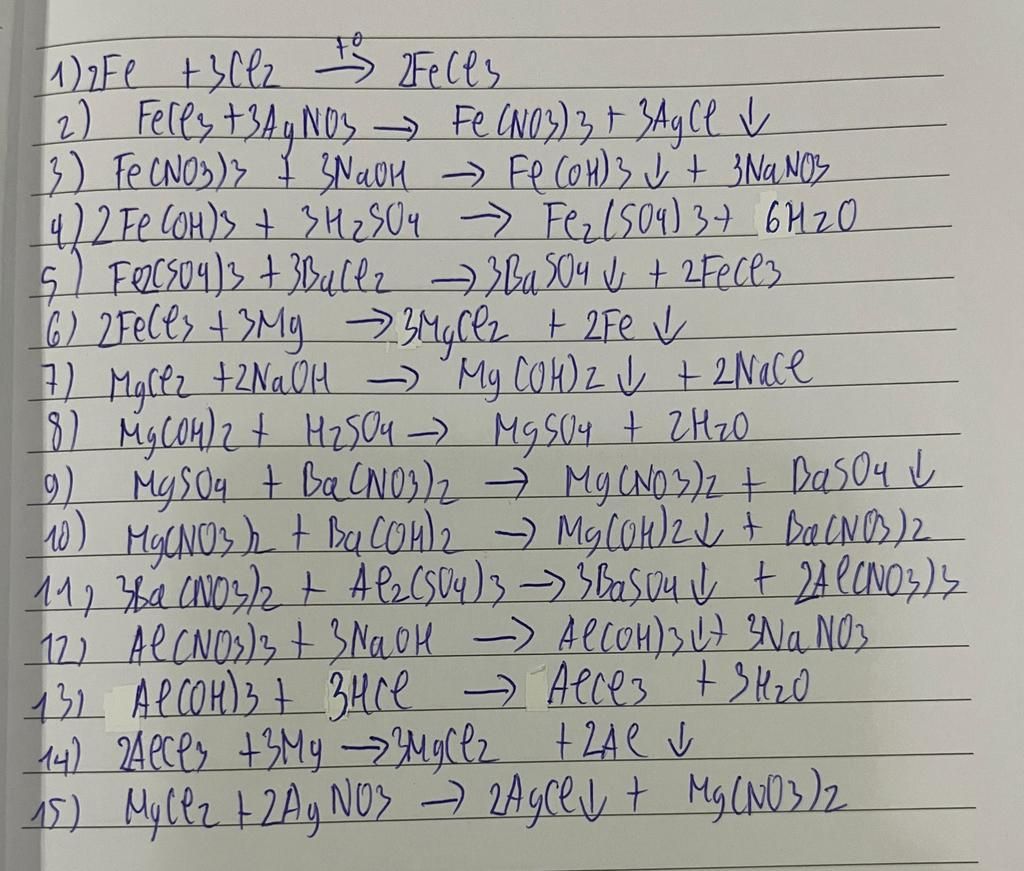 1) 2Fe + 3Cl2 →(t°) 2FeCl3
2) FeCl3 + 3AgNO3 → Fe(NO3)3 + 3AgCl ↓
3) Fe(NO3)3 + 3NaOH → Fe(OH)3 ↓ + 3NaNO3
4) 2Fe(OH)3 + 3H2SO4 → Fe2(SO4)3 + 6H2O
5) Fe2(SO4)3 + 3BaCl2 → 3BaSO4 ↓ + 2FeCl3
6) 2FeCl3 + 3Mg → 3MgCl2 + 2Fe ↓
7) MgCl2 + 2NaOH → Mg(OH)2 ↓ + 2NaCl
8) Mg(OH)2 + H2SO4 → MgSO4 + 2H2O
9) MgSO4 + Ba(NO3)2 → Mg(NO3)2 + BaSO4 ↓
10) Mg(NO3)2 + Ba(OH)2 → Mg(OH)2 ↓ + Ba(NO3)2
11, 3Ba(NO3)2 + Al2(SO4)3 → 3BaSO4 ↓ + 2Al(NO3)3
12) Al(NO3)3 + 3NaOH → Al(OH)3 ↓ + 3NaNO3
13) Al(OH)3 + 3HCl → AlCl3 + 3H2O
14) 2AlCl3 + 3Mg → 3MgCl2 + 2Al ↓
15) MgCl2 + 2AgNO3 → 2AgCl ↓ + Mg(NO3)2